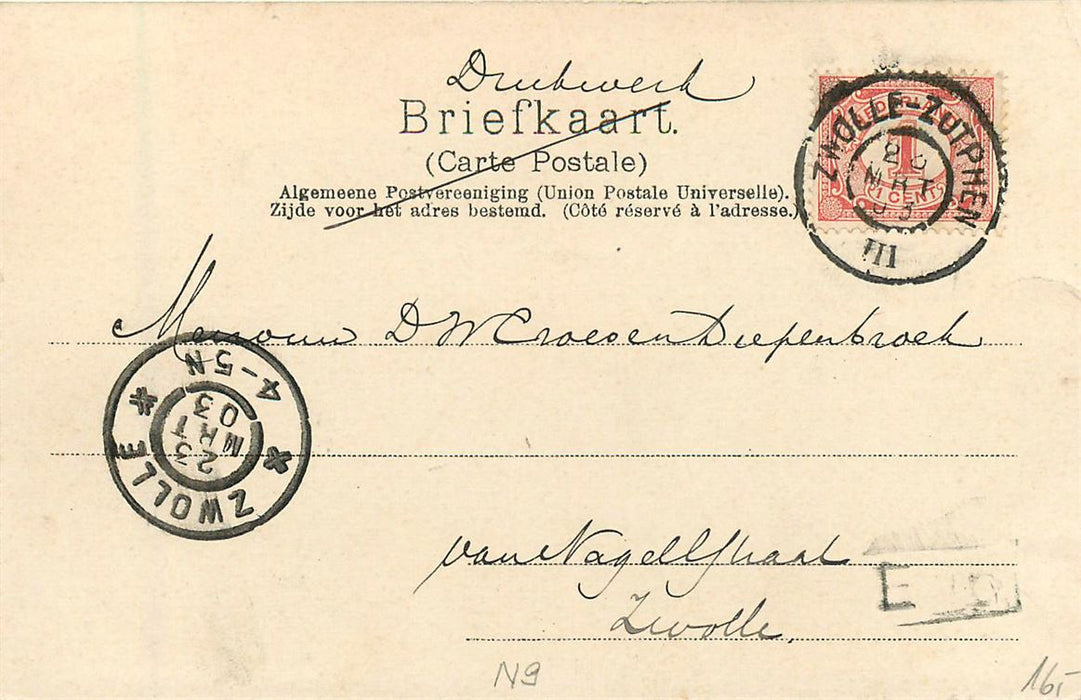 Drukwerk
Briefkaart.
(Carte Postale)
Algemeene Postvereeniging (Union Postale Universelle).
Zijde voor het adres bestemd. (Côté réservé à l'adresse.)
ZWOLLE-ZUTPHEN
MRT
03
III
1
CENT
Mevrouw D W Croesen Diepenbroek
4-5N
23
MRT
03
ZWOLLE
van Nagellstraat
Zwolle.
N9
16,-